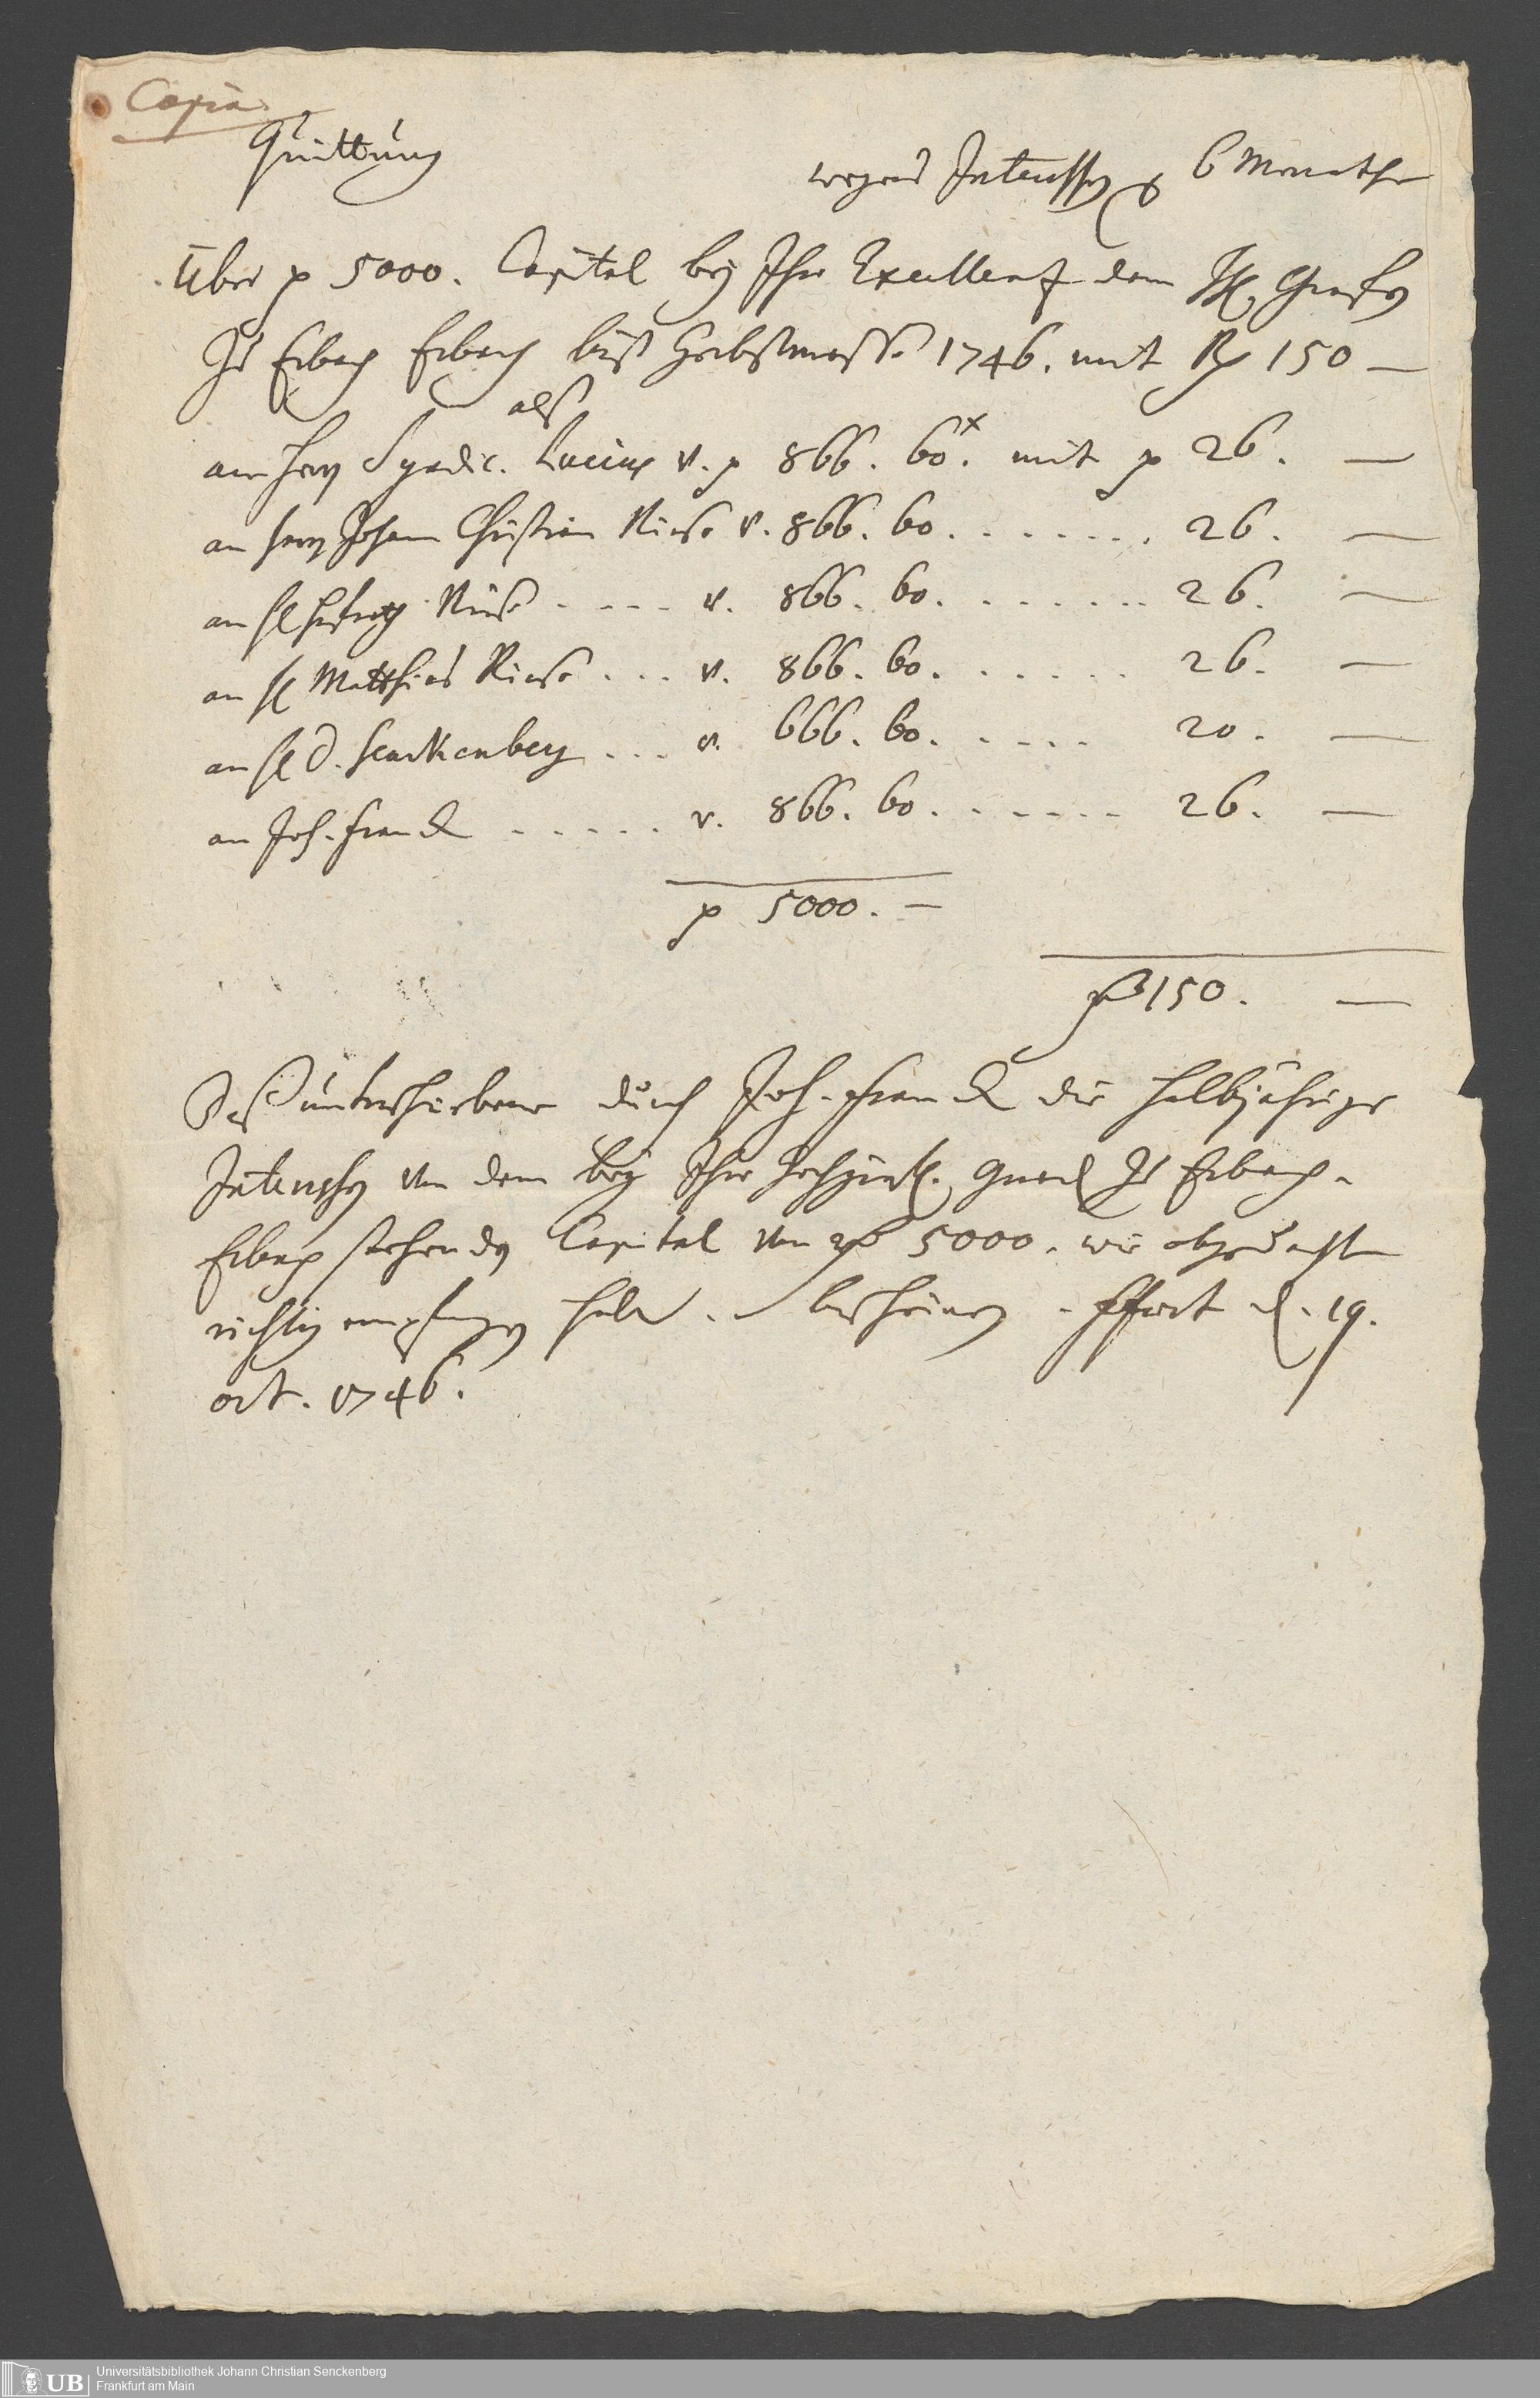 Copia
Quittung
wegen Interessen 6 Monathe
Über 5000. Capital bey Ihro Excellenz dem H. Grafen
Zu Erbach Erbach biß Herbstmesse 1746. mit 150 —
alß
an Herrn Syndic. Lucius v. 866. 60.x mit 26. —
an Herrn Johann Christian Riese v. 866. 60. . . . . . . . 26. —
an H. Riese . . . . v. 866. 60. . . . . . . . 26. —
an H. Matthias Riese . . . v. 866. 60. . . . . . . 26. —
an H. D. Senckenberg . . . v. 666. 60. . . . . 20. —
an Joh. Franck . . . . . . v. 866. 60. . . . . . . 26. —
5000. —
150. —
Daß unterschriebene durch Joh. Franck die halbjährige
Interessen von dem bey Ihro Hochgräfl. Gnad. Zu Erbach-
Erbach stehenden Capital von 5000. wie obgedacht
richtig empfangen habe. bescheinen. Ffort d. 19.
oct. 1746.
Universitätsbibliothek Johann Christian Senckenberg
Frankfurt am Main
UB